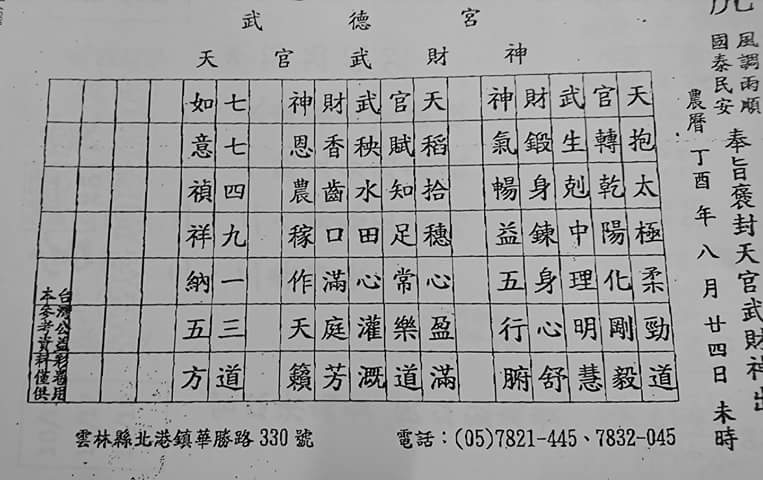 武德宮
天官武財神
風調雨順
國泰民安
奉旨褒封天官武財神出
農曆丁酉年八月廿四日未時
天抱太極柔勁道
官轉乾陽化剛毅
武生剋中理明慧
財鍛身鍊身心舒
神氣暢益五行腑
天稻拾穗心盈滿
官賦知足常樂道
武秧水田心灌溉
財香齒口滿庭芳
神恩農稼作天籟
七七四九一三道
如意禎祥納五方
本參考資料僅供
台灣公益彩券專用
雲林縣北港鎮華勝路330號 電話：(05)7821-445、7832-045